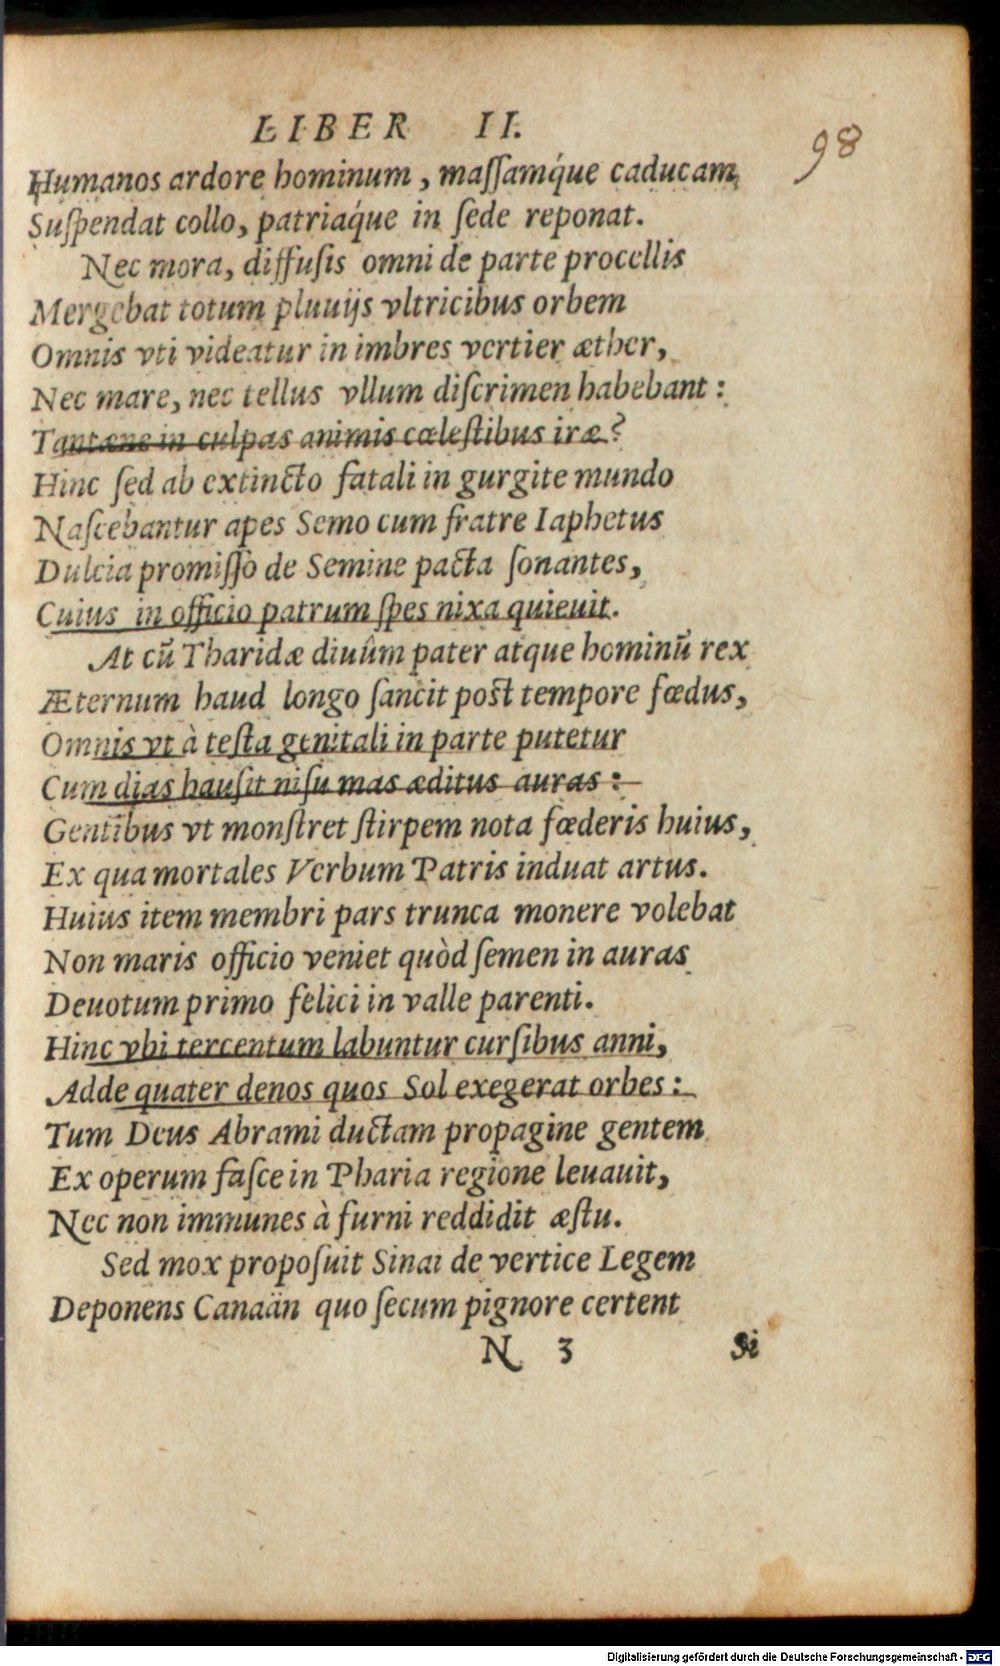 LIBER II.
98
Humanos ardore hominum, maſſamq́ue caducam,
Suſpendat collo, patriaq́ue in ſede reponat.
Nec mora, diffuſis omni de parte procellis
Mergebat totum pluuijs vltricibus orbem
Omnis vti videatur in imbres vertier æther,
Nec mare, nec tellus vllum diſcrimen habebant:
Tantæne in culpas animis cœleſtibus iræ?
Hinc ſed ab extincto fatali in gurgite mundo
Naſcebantur apes Semo cum fratre Iaphetus
Dulcia promiſſo de Semine pacta ſonantes,
Cuius in officio patrum ſpes nixa quieuit.
At cū Tharidæ diuûm pater atque hominū rex
Æternum haud longo ſancit poſt tempore fœdus,
Omnis vt à teſta genitali in parte putetur
Cum dias hauſit niſu mas æditus auras:
Gentibus vt monſtret ſtirpem nota fœderis huius,
Ex qua mortales Verbum Patris induat artus.
Huius item membri pars trunca monere volebat
Non maris officio veniet quòd ſemen in auras
Deuotum primo felici in valle parenti.
Hinc vbi tercentum labuntur curſibus anni,
Adde quater denos quos Sol exegerat orbes:
Tum Deus Abrami ductam propagine gentem
Ex operum faſce in Pharia regione leuauit,
Nec non immunes à furni reddidit æſtu.
Sed mox propoſuit Sinai de vertice Legem
Deponens Canaän quo ſecum pignore certent
N 3 Si
Digitalisierung gefördert durch die Deutsche Forschungsgemeinschaft - DFG